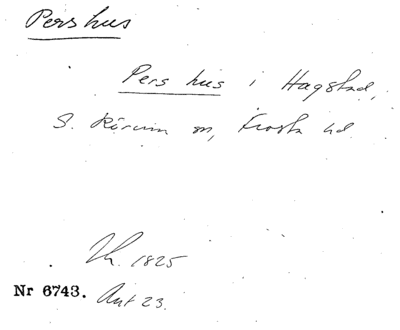 Pers hus
Pers hus i Hagstad,
S. Rörum sn, Frosta hd
Th. 1825
Nr 6743. Ant 23.